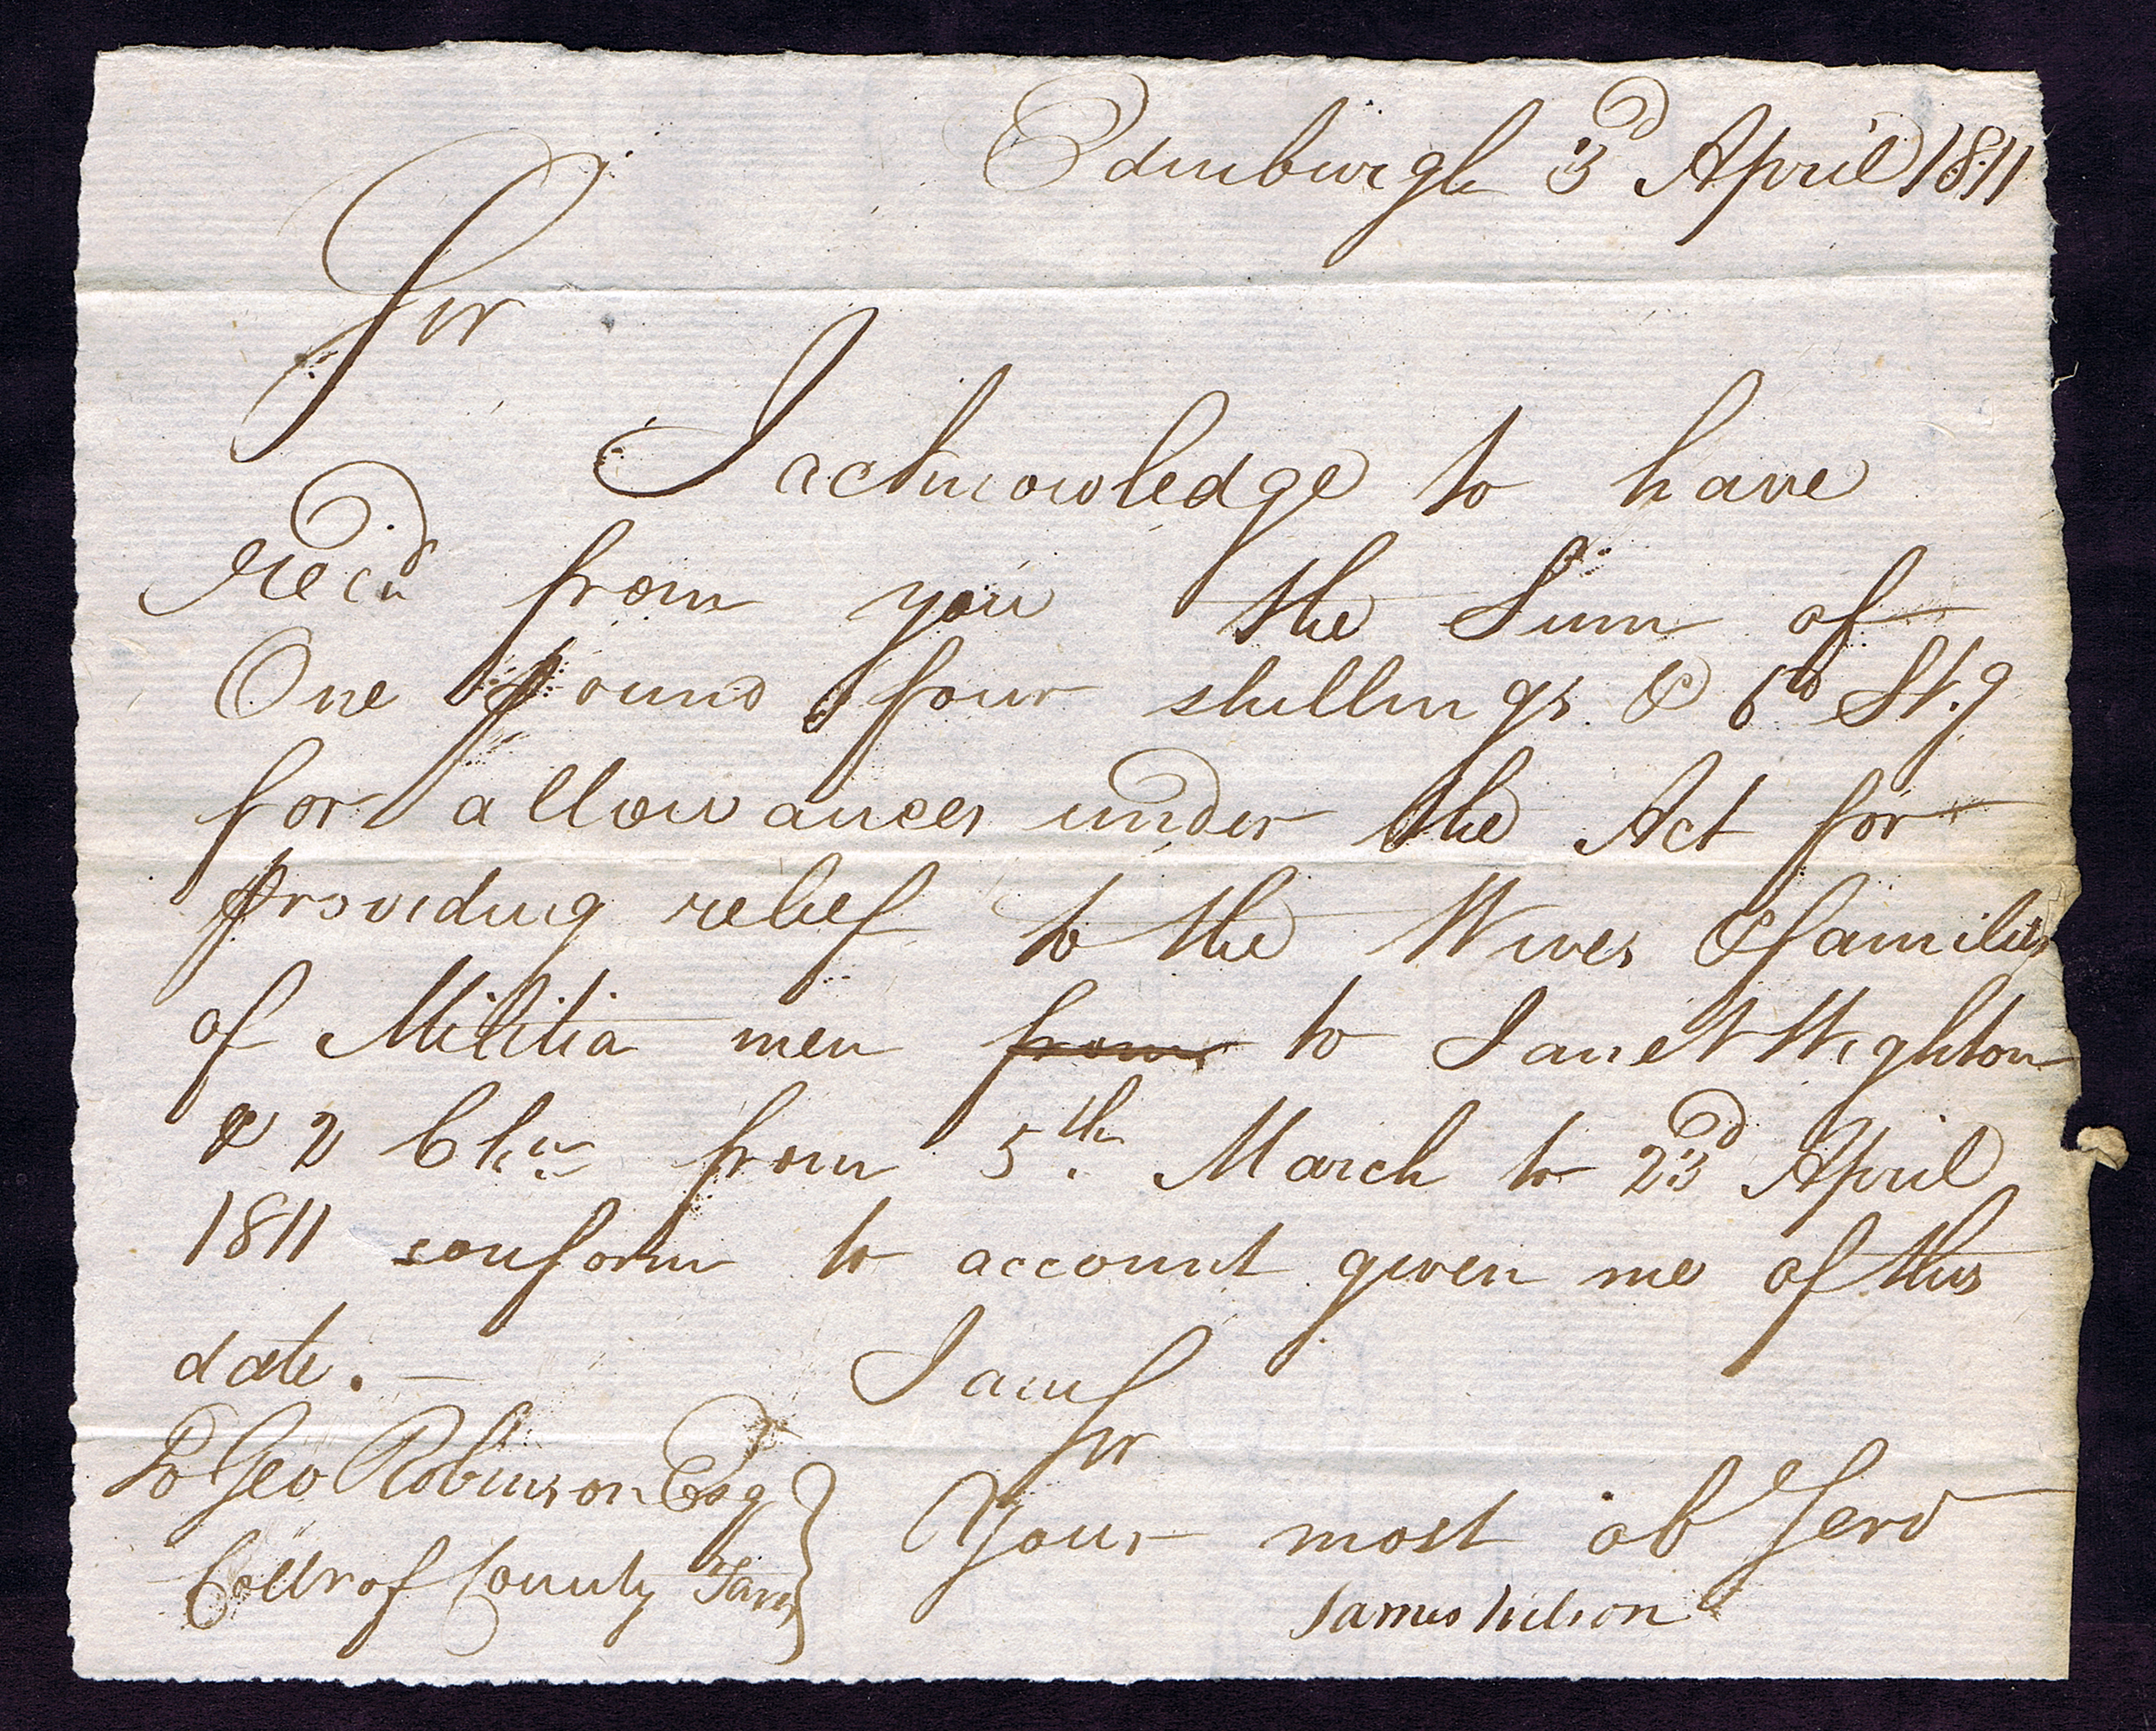 Edinburgh 3d April 1811
Sir
I acknowledge to have
recd from you the Sum of
One pound four shillings & 6d Stg
for allowances under the Act for
providing relief to the Wives & families
of Militia men from to Janet Wighton
& 2 Chn from 5th March to 23d April
1811 conform to account given me of this
date. —
I am Sir
To Geo Robinson Esq
Your most ob Serv
Collr of County Taxes
James Wilson